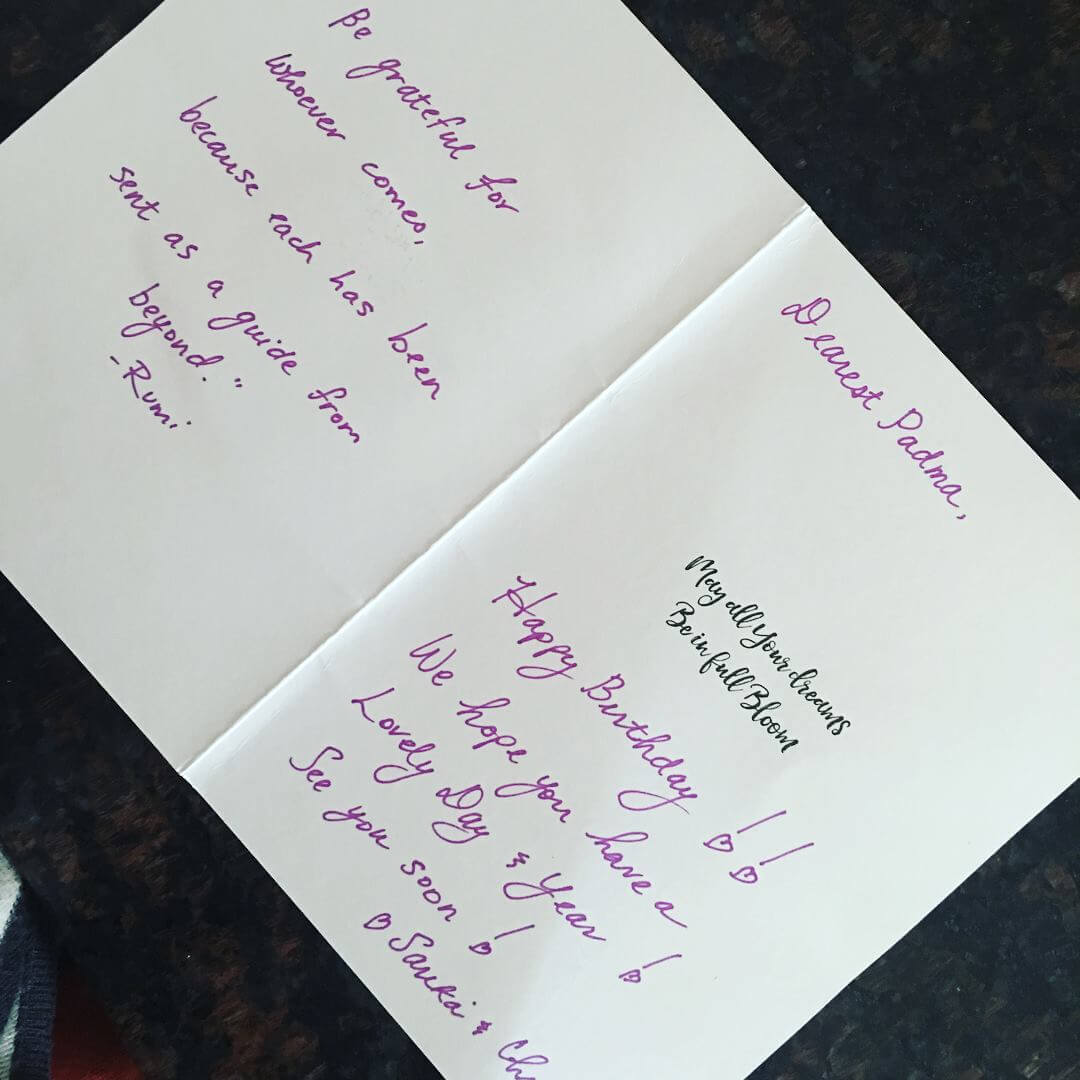 Be grateful for
whoever comes,
because each has been
sent as a guide from
beyond."
-Rumi
Dearest Padma,
May all Your dreams
Be in full Bloom
Happy Birthday!!
We hope you have a
Lovely Day & Year!
See you soon!
&